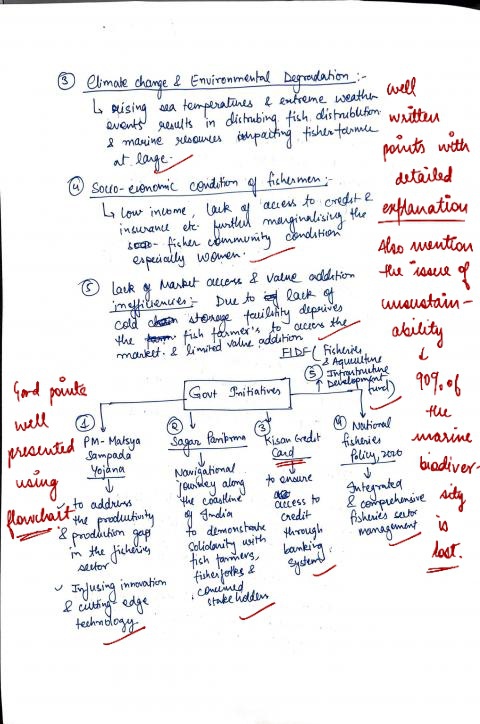 ③ Climate change & Environmental Degradation :-
↳ rising sea temperatures & extreme weather
events results in distrubing fish distrubtion
& marine resources impacting fisherfarmer
at large.
④ Socio-economic condition of fishermen :-
↳ low income, lack of access to credit &
insurance etc. further marginalising the
fisher community condition
especially women.
⑤ Lack of Market access & value addition
inefficiencies :- Due to lack of
cold storage facility deprives
the fish farmer's to access the
market & limited value addition
well
written
points with
detailed
explanation
Also mention
the issue of
unsustain-
ability
↓
90% of
the
marine
biodiver-
sity
is
lost.
Good points
well
presented
using
flowchart
Govt Initiatives
① PM-Matsya
Sampada
Yojana
↓
to address
the productivity
& production gap
in the fisheries
sector
Infusing innovation
& cutting-edge
technology
② Sagar Parikrma
↓
Navigational
journey along
the coastline
of India
to demonstrate
solidarity with
fish farmers,
fisherfolks &
concerned
stakeholders
③ Kisan Credit
Card
↓
to ensure
access to
credit
through
banking
system
④ National
fisheries
Policy, 2020
↓
Integrated
& comprehensive
fisheries sector
management
⑤ FIDF (Fisheries
& Aquculture
Infrastructure
Development
fund)